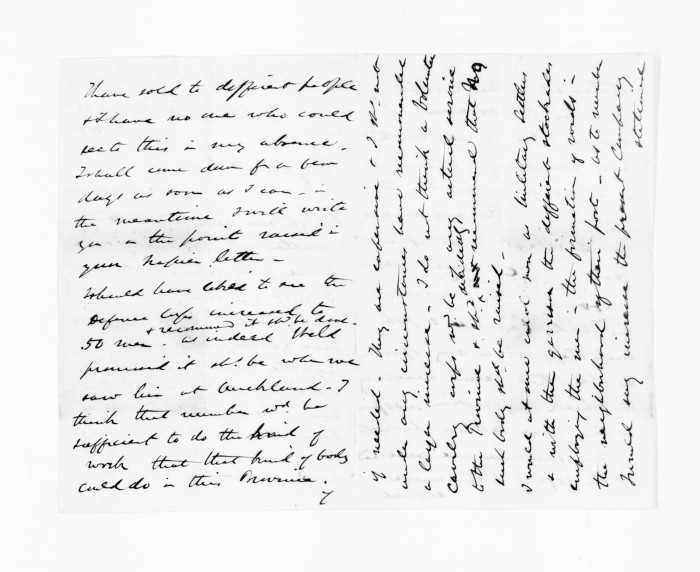 I have sold to different people
& I have no one who could
see to this in my absence.
I shall come down for a few
days as soon as I can - in
the meantime I will write
you on the point raised in
your Napier letter -
I should have liked to see the
Defence Corps increased to
& recommend it shd. be done.
50 men - as indeed Weld
promised it shd. be when we
saw him at Auckland - I
think that number wd. be
sufficient to do the kind of
work that that kind of body
could do in this Province.
if needed. They are expensive & I shd. not
under any circumstances have recommended
a large increase - I do not think a Volunteer
Cavalry corps wd. be of any actual service
to the Province & shd. decidedly recommend that no
such body shd. be raised -
I would at once call on a Military Settlers
& with the officers the different stockades
employing the men in the formation of roads -
the neighborhood of their post - as to number
I would say increase the present